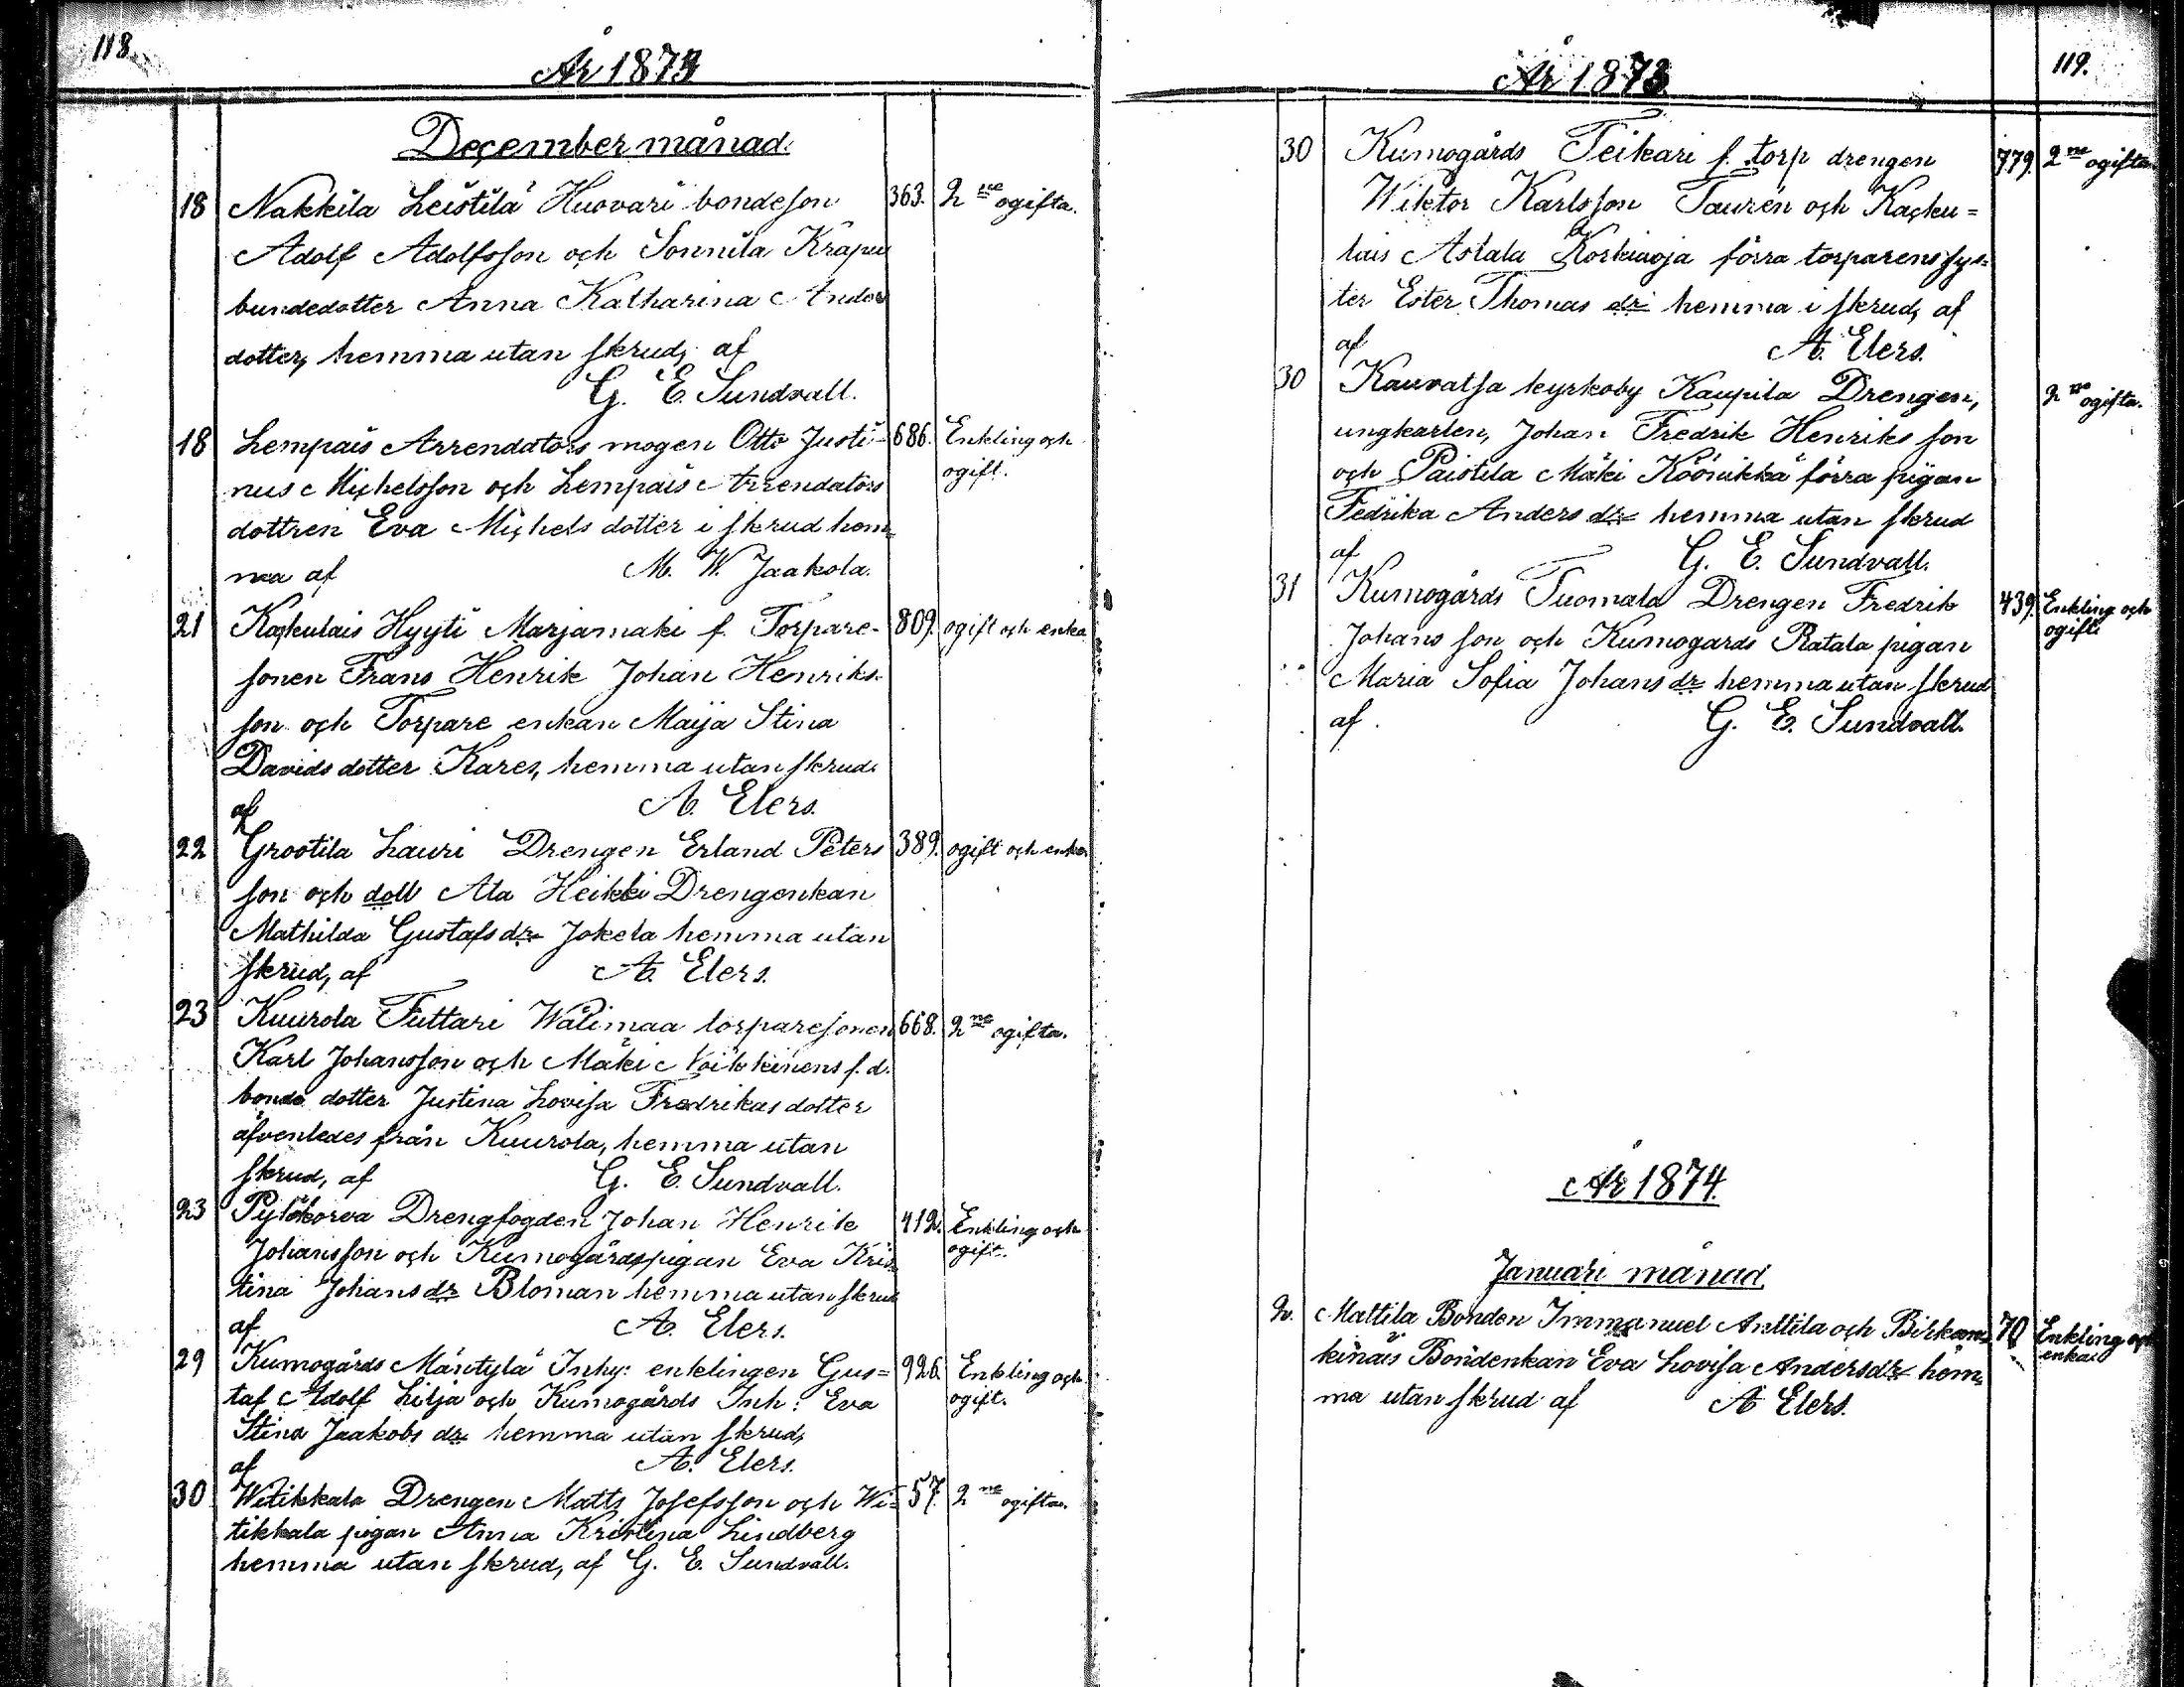 118.
År 1873
December månad.
18 Nakkila Leistilä Huovari bondeson 363. 2ne ogifta.
Adolf Adolfsson och Sonnila Krapu
bondedotter Anna Katharina Anders
dotter, hemma utan skrud, af
G. E. Sundvall.
18 Lempais Arrendators mogen Otto Justi- 686. Enkling och
nus Michelsson och Lempais Arrendators ogift.
dottren Eva Michels dotter i skrud hem-
ma af M. W. Jaakola.
21 Kaskulais Hyyti Marjamaki f. Torpare- 809. ogift och enka
sonen Frans Henrik Johan Henriks-
son och Torpare enkan Maija Stina
Davids dotter Kares, hemma utan skrud.
af A. Elers.
22 Grootila Lauri Drengen Erland Peters 389. ogift och enka
son och Ala Heikki Drengenkan
Mathilda Gustafs dr Jokela hemma utan
skrud, af A. Elers.
23 Kuurola Tuttari Wälimaa torparesonen 668. 2ne ogifta.
Karl Johansson och Mäki f. d.
bonde dotter Justina Lovisa Fredrikas dotter
äfvenledes från Kuurola, hemma utan
skrud, af G. E. Sundvall.
23 Pylökorva Drengfogden Johan Henrik 412. Enkling och
Johansson och Kumogårdspigan Eva Kris- ogift.
tina Johans dr Bloman hemma utan skrud
af A. Elers.
29 Kumogårds Mäntylä Inhy: enklingen Gus= 926. Enkling och
taf Adolf Lilja och Kumogårds Inh: Eva ogift.
Stina Jaakobs dr hemma utan skrud,
af A. Elers.
30 Witikkala Drengen Matts Josefsson och Wi= 57. 2ne ogifta.
tikkala pigan Anna Kristina Lindberg
hemma utan skrud, af G. E. Sundvall.
119.
År 1873
30 Kumogårds Teikari f. torp drengen 779. 2ne ogifta
Wiktor Karlsson Taurén och Kasku=
lais Astala Korkiaoja förra torparens sys=
ter Ester Thomas dr hemma i skrud, af
af A. Elers.
30 Kauvatsa kyrkoby Kaupila Drengen, 2ne ogifta.
ungkarlen, Johan Fredrik Henriks son
och Paistila Mäki Köönikkä förra pigan
Fedrika Anders dr hemma utan skrud
af G. E. Sundvall.
31 Kumogårds Tuomala Drengen Fredrik 439. Enkling och
Johans son och Kumogards Ratala pigan ogift.
Maria Sofia Johans dr hemma utan skrud
af G. E. Sundvall.
År 1874.
Januari månad.
2. Mattila Bonden Immanuel Anttila och Birkan= 70 Enkling och
kinais Bondenkan Eva Lovisa Andersdr hem= enka
ma utan skrud af A Elers.